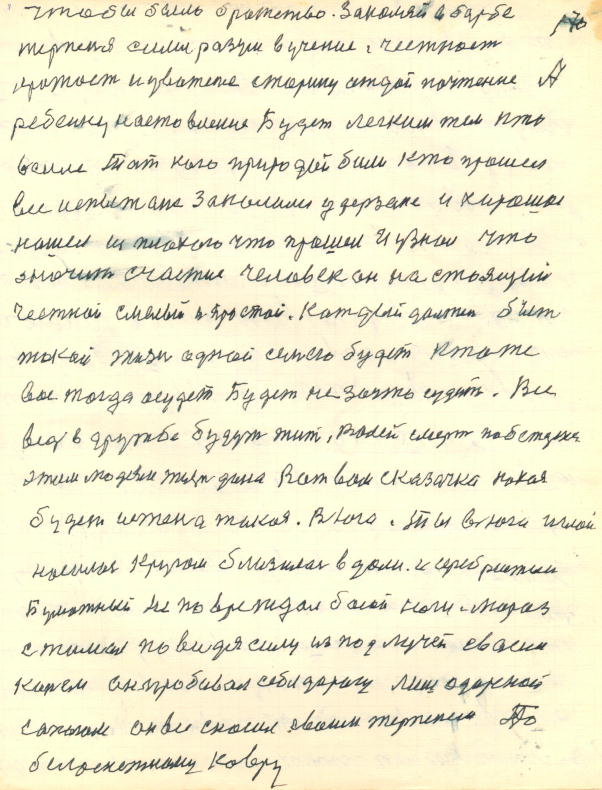 чтобы было братство. Закаляй в барбе
терпеня сили разум в учение, честност
кротост и уважене старику отдай почтение А
ребенку настовление Будет легким тем кто
в силе Тот кого природой били кто прошел
все испытане Закалили удержане и хорошое
нашел из плохого что прошел И узнал что
значит счастие человек он настоящий
честной смелый и простой. Каждый должен быт
такой жизн одной семьею будет Кто же
вас тогда осудет Будет не за что судит. Все
ведь в дружбе будут жит, Волей смерт побеждена
этим людям жизн дана Вот вам сказачка какая
будет истена такая. Вюга. Ты вюга иглой
носилас Кругом близилас в дали. и серебристый
Бумажный не повреждал босой ноги. Мороз
стимал по видя силу из под лучей своем
он пробивал себе дорогу лиш одежной
он все сносил своим терпенем По
белоснежному Ковру